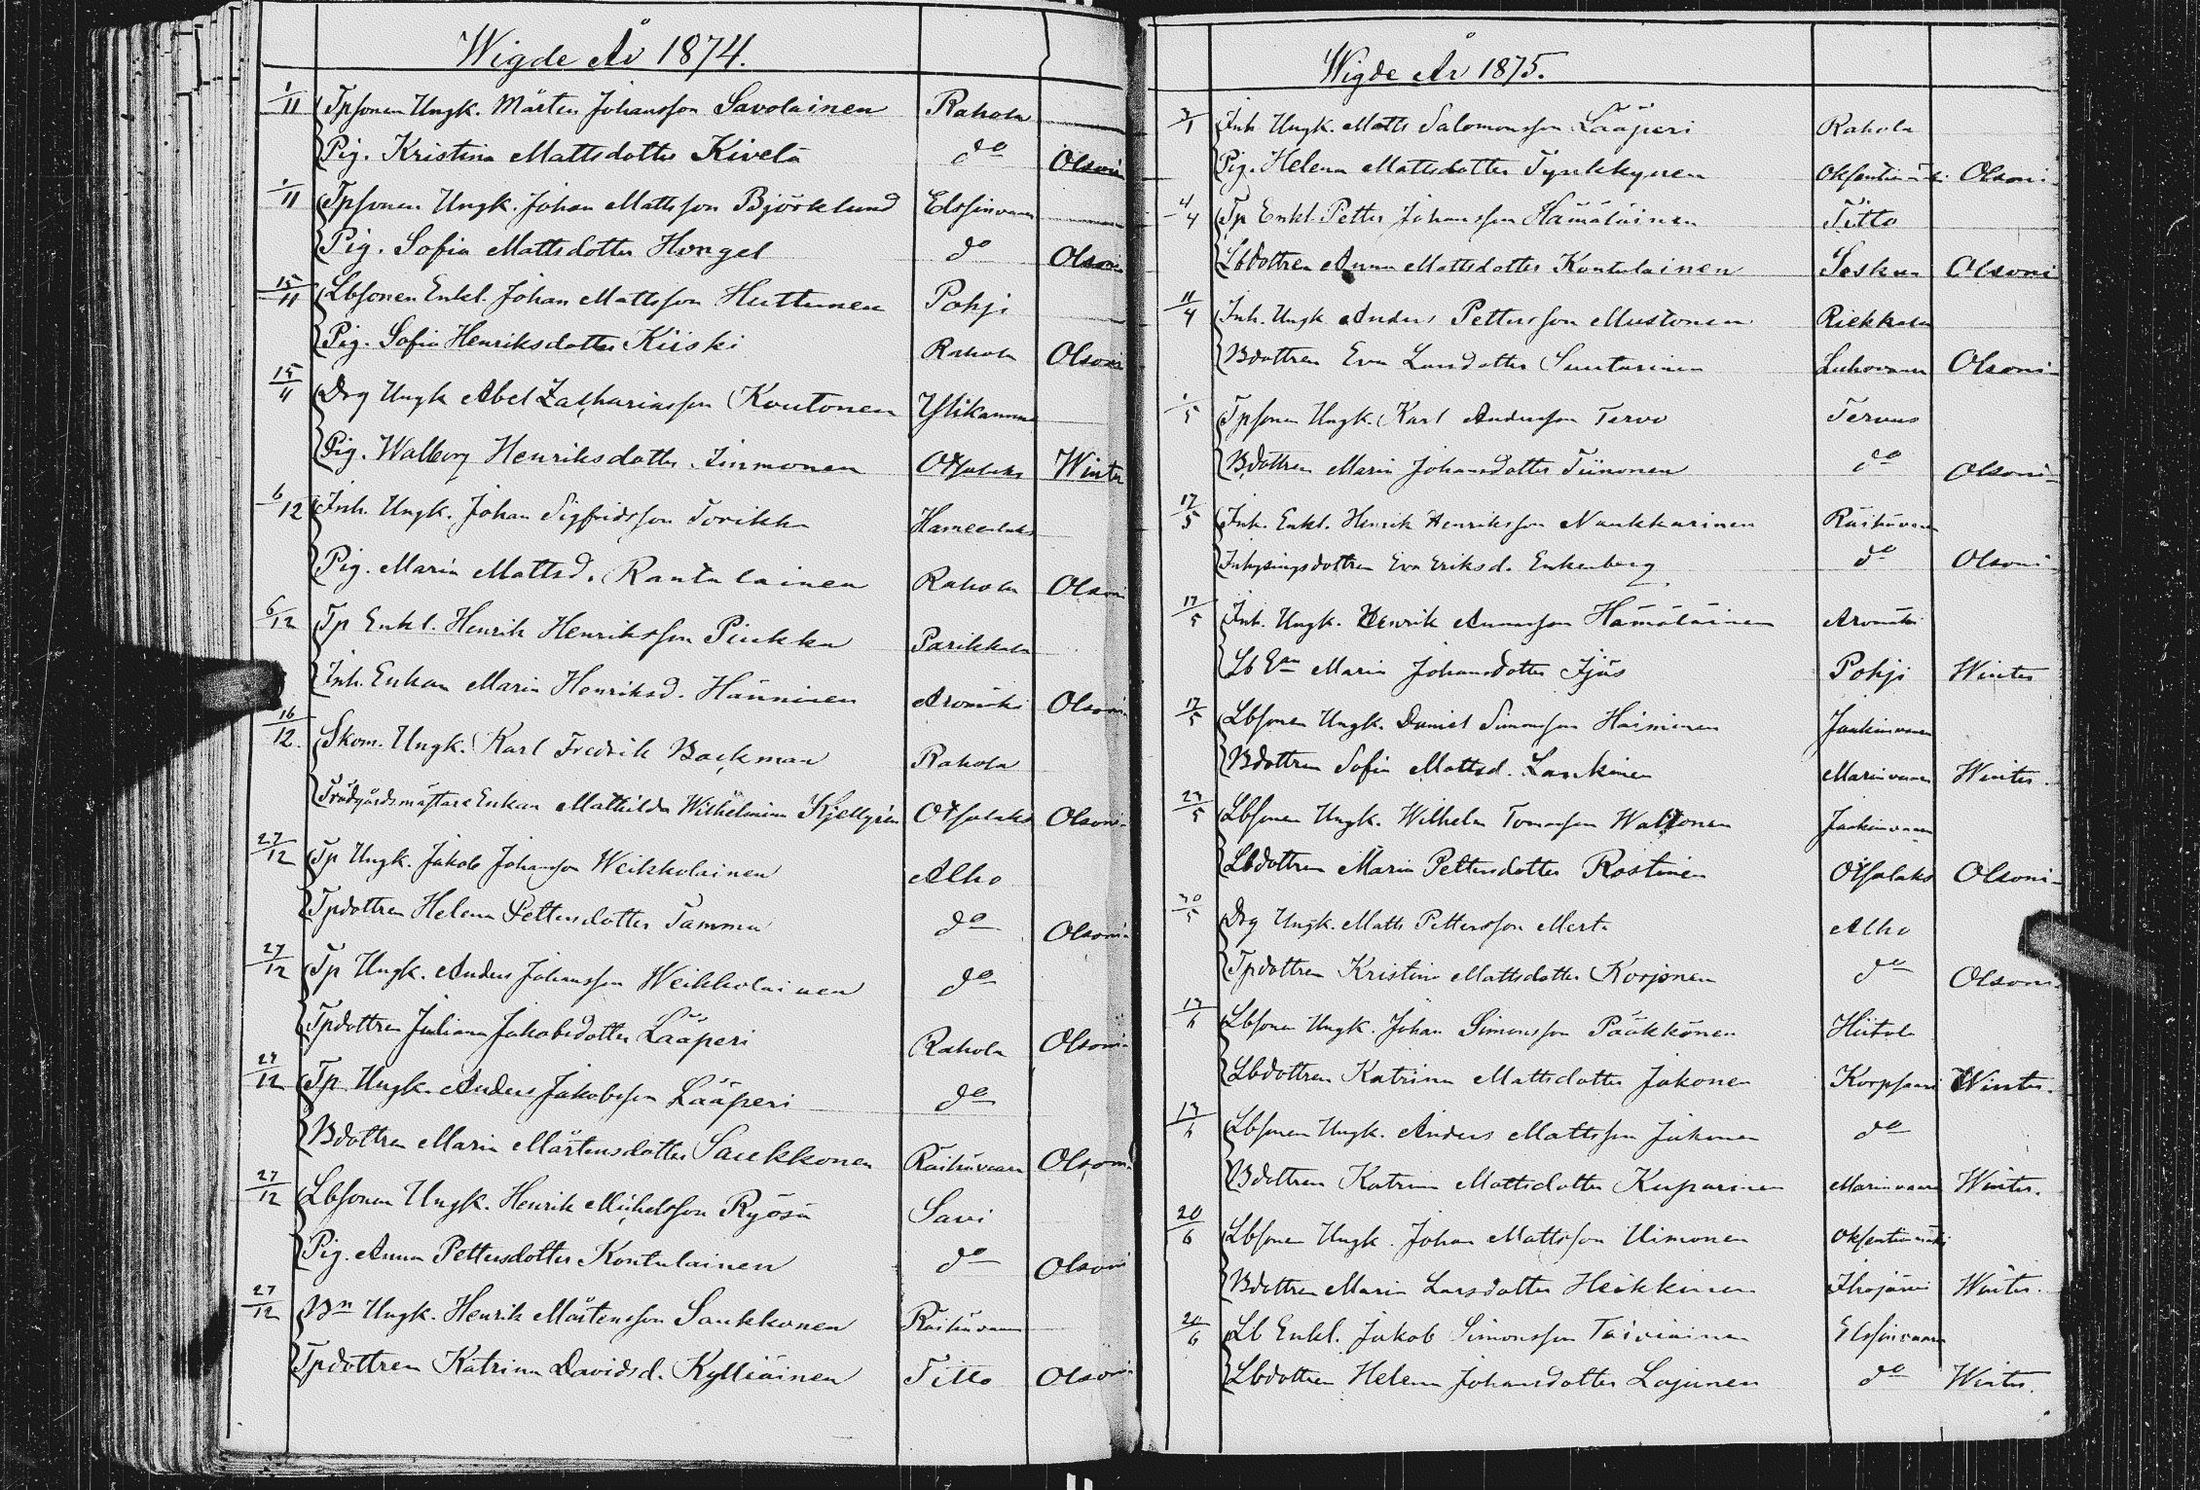 Wigde År 1874.
1/11 Tpsonen Ungk. Mårten Johansson Savolainen Rahola
Pig. Kristina Mattsdotter Kivelä do Olsoni
1/11 Tpsonen Ungk. Johan Mattsson Björklund Elssinvaara
Pig. Sofia Mattsdotter Hongel do Olsoni
15/11 Lbsonen Enkl. Johan Mattsson Huttunen Pohji
Pig. Sofia Henriksdotter Kiiski Rahola Olsoni
15/11 Drg Ungk Abel Zachariasson Koutonen
Pig. Walborg Henriksdotter Immonen Otsalaks Winter
6/12 Inh. Ungk. Johan Sigfridsson Torikka
Pig. Maria Mattsd. Rantalainen Rahola Olsoni
6/12 Tp Enkl. Henrik Henriksson Piukka Parikkala
Inh. Enkan Maria Henriksd. Hänninen Aromäki Olsoni
16/12. Skom. Ungk. Karl Fredrik Backman Rahola
Trädgårdsmästare Enkan Mathilda Wilhelmina Kjellgrén Otsalaks Olsoni
27/12 Tp Ungk. Jakob Johansson Weikkolainen Alho
Tpdottren Helena Pettersdotter Tammu do Olsoni
27/12 Tp Ungk. Anders Johansson Weikkolainen do
Tpdottren Juliana Jakobsdotter Lääperi Rahola Olsoni
27/12 Tp Ungk. Anders Jakobsson Lääperi do
Bdottren Maria Mårtensdotter Saukkonen Raihivaara Olsoni
27/12 Lbsonen Ungk. Henrik Michelsson Ryösä Savi
Pig. Anna Pettersdotter Kontulainen do Olsoni
27/12 Bn Ungk. Henrik Mårtensson Saukkonen Raihivaara
Tpdottren Katrina Davidsd. Kylliäinen Titto Olsoni
Wigde År 1875.
3/1 Inh. Ungk. Matts Salomonsson Lääperi Rahola
Pig. Helena Mattsdotter Tynkkynen Oksentimäki Olsoni
4/4 Tp Enkl. Petter Johansson Hämäläinen Titto
Lbdottren Anna Mattsdotter Kontulainen Soskua Olsoni
11/4 Inh. Ungk Anders Pettersson Mustonen Riekkala
Bdottren Eva Larsdotter Suutarinen Olsoni
1/5 Tpsonen Ungk. Karl Andersson Tervo Tervus
Bdottren Maria Johansdotter Tiinonen do Olsoni
17/5 Inh. Enkl. Henrik Henriksson Naukkarinen Raihivaara
Inhysingsdottren Eva Eriksd. Enkenberg do Olsoni
17/5 Inh. Ungk. Henrik Hämäläinen Aromäki
Lb Ean Maria Johansdotter Ijäs Pohji Winter
17/5 Lbsonen Ungk. Daniel Simonsson Jaakinvaara
Bdottren Sofia Mattsd. Laukinen Marinvaara Winter.
23/5 Lbsonen Ungk. Wilhelm Tomasson Waltonen Jaakinvaara
Lbdottren Maria Pettersdotter Rastinen Otsalaks Olsoni
30/5 Drg Ungk. Matts Pettersson Merta Alho
Tpdottren Kristina Mattsdotter Korjonen do Olsoni
13/6 Lbsonen Ungk. Johan Simonsson Pääkkönen Hiitola
Lbdottren Katrina Mattsdotter Jakonen Korpsaari Winter.
13/6 Lbsonen Ungk. Anders Mattsson Jakonen do
Bdottren Katrina Mattsdotter Kuparinen Marinvaara Winter.
20/6 Lbsonen Ungk. Johan Mattsson Uimonen Oksentimäki
Bdottren Maria Larsdotter Heikkinen Ihojärvi Winter.
20/6 Lb Enkl. Jakob Simonsson Taiviainen Elssinvaara
Lbdottren Helena Johansdotter Lajunen do Winter.